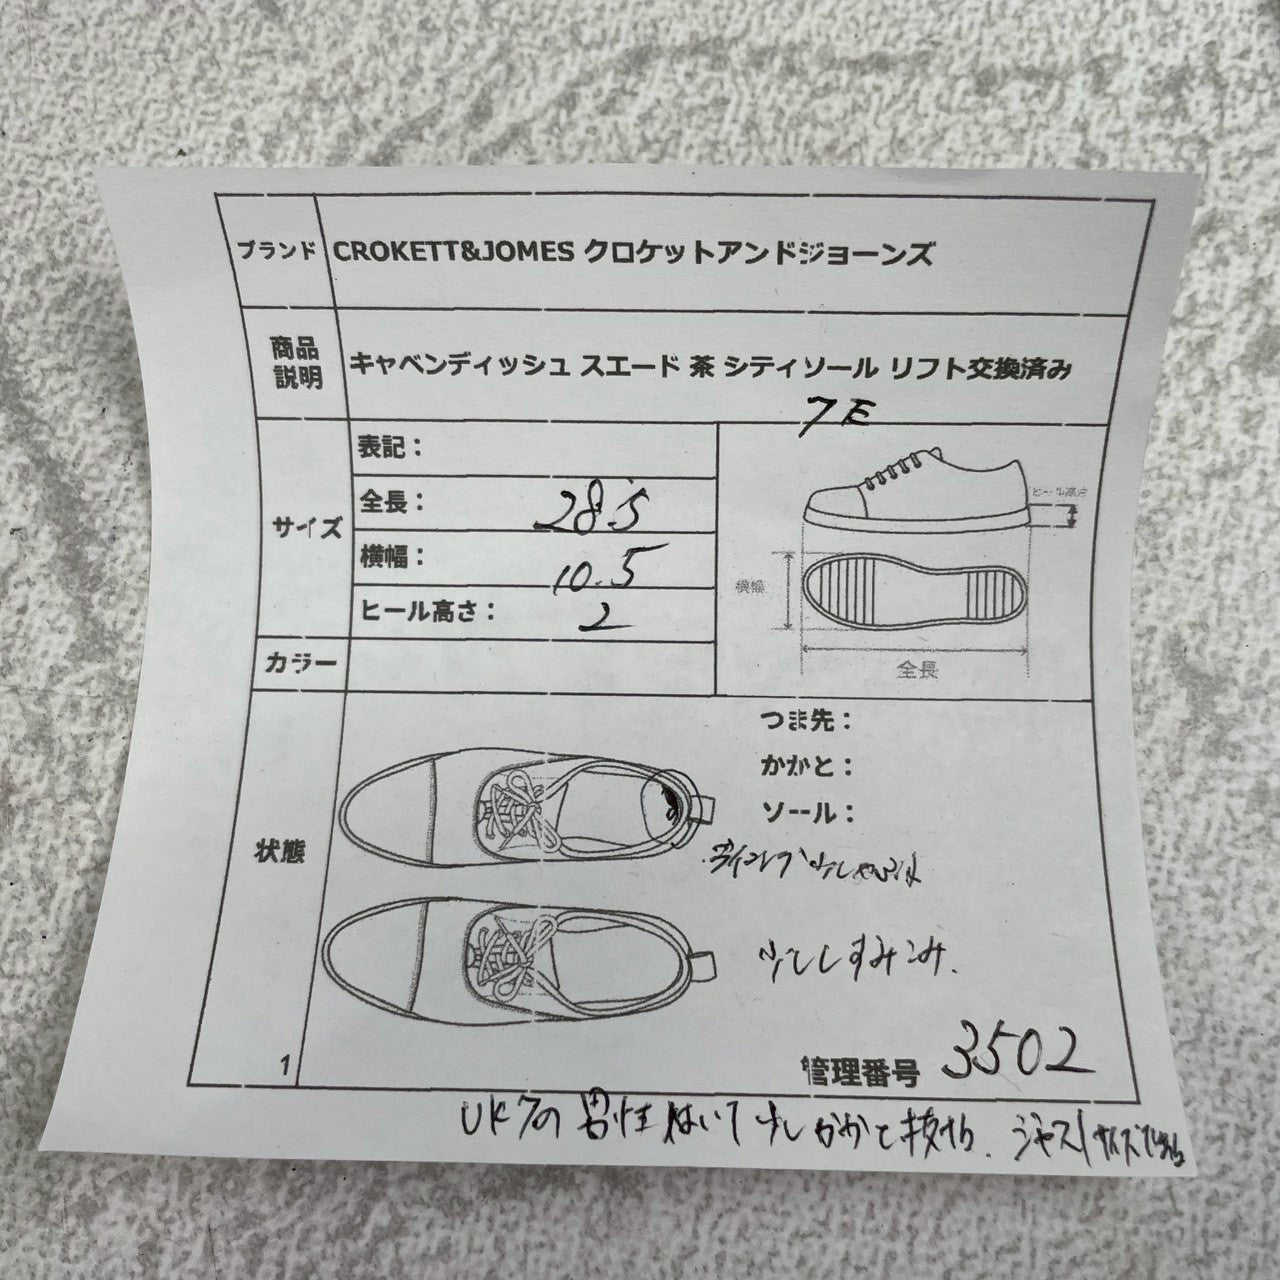 ブランド CROKETT&JOMES クロケットアンドジョーンズ
商品説明 キャベンディッシュ スエード 茶 シティソール リフト交換済み
7E
サイズ
表記：
全長： 28.5
横幅： 10.5
ヒール高さ： 2
ヒール高さ
横幅
全長
カラー
状態
つま先：
かかと：
ソール：
ライニング 少し
少ししずみこみ.
1
管理番号 3502
UK7の男性はいて少しかかと抜ける. ジャストサイズ